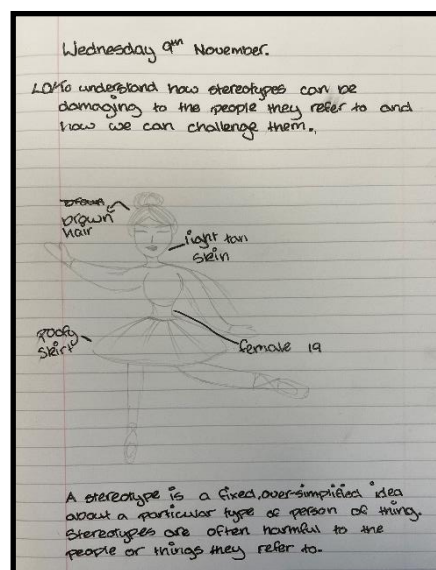 Wednesday 9th November.
LO: To understand how stereotypes can be
damaging to the people they refer to and
how we can challenge them.
brown
brown
hair
light tan
skin
poofy
skirt
female 19
A stereotype is a fixed, over-simplified idea
about a particular type of person of thing.
Stereotypes are often harmful to the
people or things they refer to.